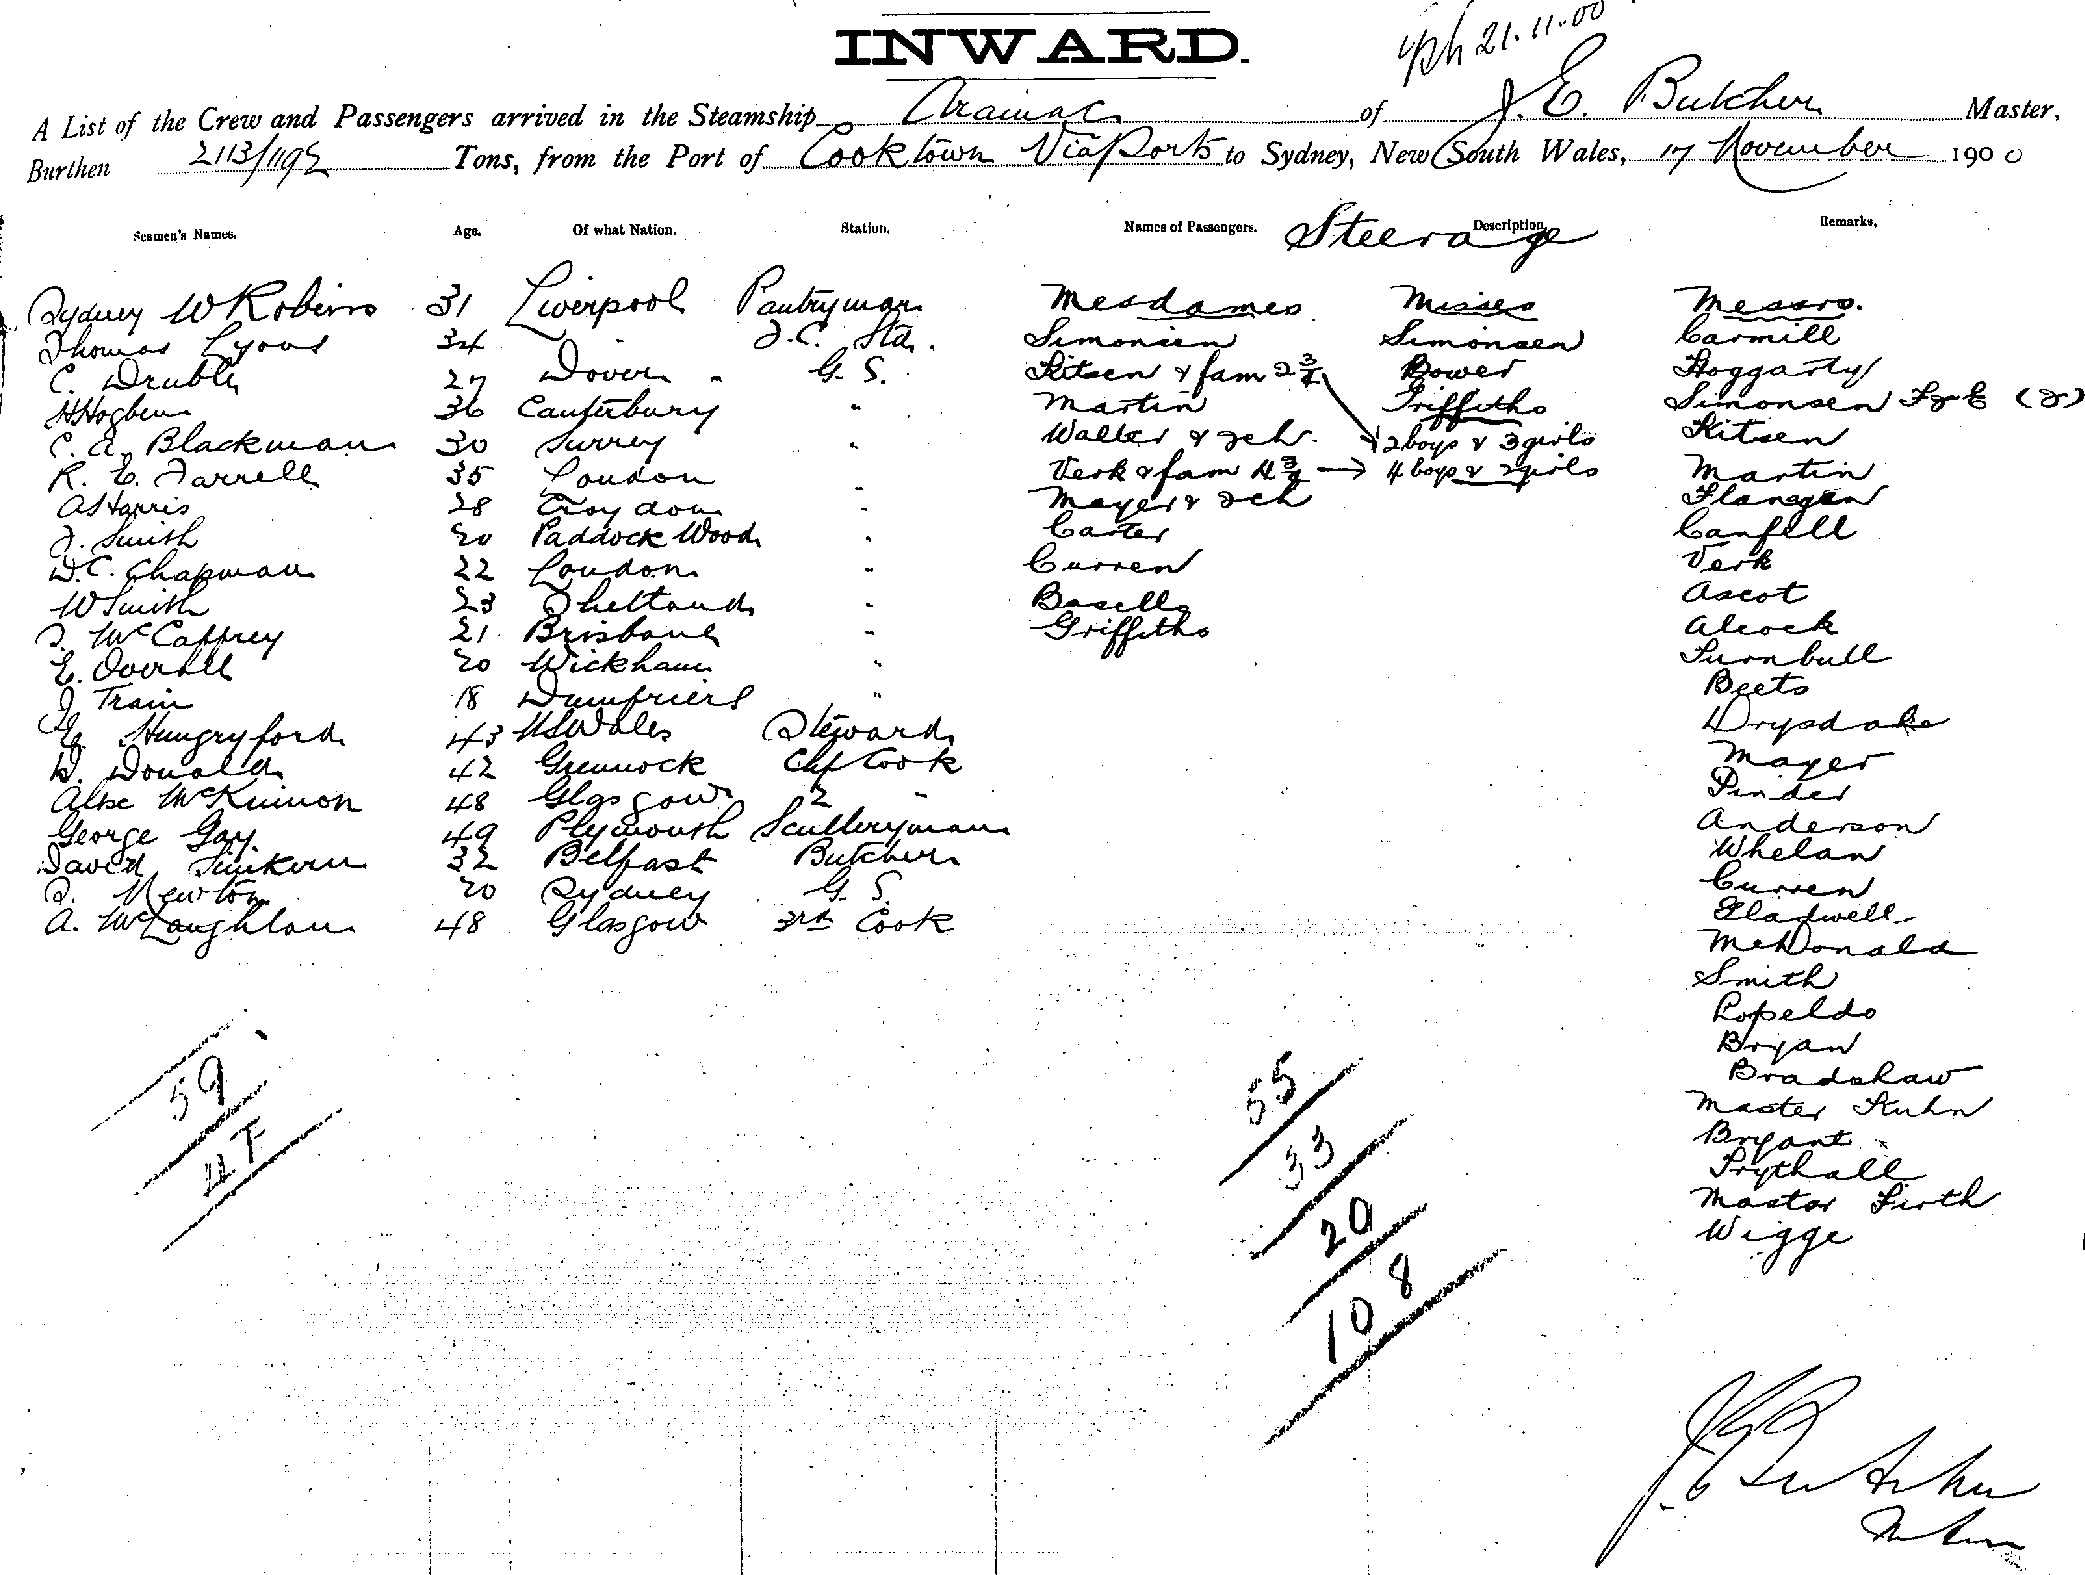 INWARD.
21.11.00
A List of the Crew and Passengers arrived in the Steamship Aramac of J. E. Butcher Master,
Burthen 2113/1192 Tons, from the Port of Cooktown Via Ports to Sydney, New South Wales, 17 November 1900
Seamen's Names. Age. Of what Nation. Station. Names of Passengers. Description. Remarks.
Steerage
Sydney W Robins 31 Liverpool Pantryman Mesdames Misses Messrs.
Thomas Lyons 34 " F.C. Std. Simonsen Simonsen Carmill
C. Drubly 27 Dover " G. S. Kitsen & fam 2 3/4 Bower Hoggarty
H Hogben 36 Canterbury " Martin Griffiths Simonsen
C. A. Blackman 30 Surrey " Walter & 2ch. 2 boys & 3 girls Kitsen
R. E. Farrell 35 London " Verk & fam 4 3/4 4 boys & 2 girls Martin
A Harris 28 Croydon " Mayer & 2ch Flanagan
J. Smith 20 Paddock Wood " Carter Canfell
W. C. Chapman 22 London " Curren Verk
W Smith 23 Shetland " Basells Ascot
J. McCaffrey 21 Brisbane " Griffiths Alcock
E. Overall 20 Wickham " Turnbull
J. Train 18 Dumfries " Beets
G. Hungryford 43 NSWales Steward Drysdale
W. Donald 42 Greenock Chf Cook Mayer
Alex McKinnon 48 Glasgow 2 " Pinder
George Gay. 49 Plymouth Sculleryman Anderson
David Simkern 32 Belfast Butcher Whelan
S. Newton 20 Sydney G. S. Curren
A. McLaughlan 48 Glasgow 3rd Cook Gladwell
McDonald
Smith
Lopeldo
Bryan
Bradshaw
Master Kuhn
Bryant
Prythall
Master Firth
Wigge
59
47
55
33
20
108
J. E. Butcher
Master